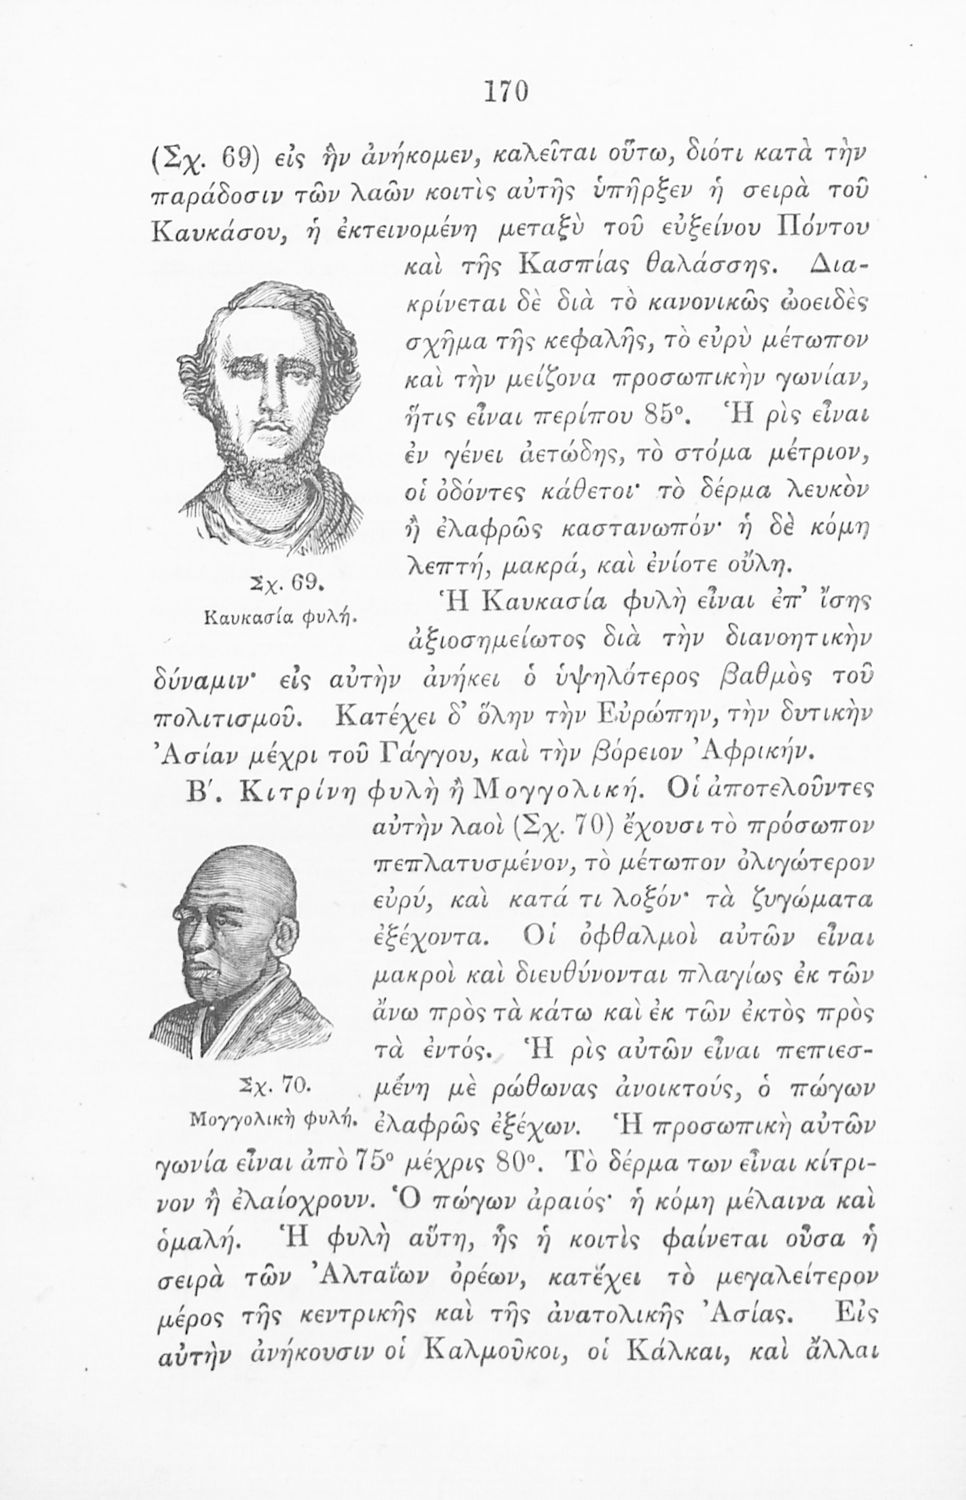 170
(Σχ. 69) εἰς ἣν ἀνήκομεν, καλεῖται οὕτω, διότι κατὰ τὴν
παράδοσιν τῶν λαῶν κοιτὶς αὐτῆς ὑπῆρξεν ἡ σειρὰ τοῦ
Καυκάσου, ἡ ἐκτεινομένη μεταξὺ τοῦ εὐξείνου Πόντου
καὶ τῆς Κασπίας θαλάσσης. Δια-
κρίνεται δὲ διὰ τὸ κανονικῶς ὠοειδὲς
σχῆμα τῆς κεφαλῆς, τὸ εὐρὺ μέτωπον
καὶ τὴν μείζονα προσωπικὴν γωνίαν,
ἥτις εἶναι περίπου 85°. Ἡ ρὶς εἶναι
ἐν γένει ἀετώδης, τὸ στόμα μέτριον,
οἱ ὀδόντες κάθετοι· τὸ δέρμα λευκὸν
ἢ ἐλαφρῶς καστανωπόν· ἡ δὲ κόμη
λεπτή, μακρά, καὶ ἐνίοτε οὔλη.
Σχ. 69.
Καυκασία φυλή.
Ἡ Καυκασία φυλὴ εἶναι ἐπ' ἴσης
ἀξιοσημείωτος διὰ τὴν διανοητικὴν
δύναμιν· εἰς αὐτὴν ἀνήκει ὁ ὑψηλότερος βαθμὸς τοῦ
πολιτισμοῦ. Κατέχει δ' ὅλην τὴν Εὐρώπην, τὴν δυτικὴν
Ἀσίαν μέχρι τοῦ Γάγγου, καὶ τὴν βόρειον Ἀφρικήν.
Β΄. Κιτρίνη φυλὴ ἢ Μογγολική. Οἱ ἀποτελοῦντες
αὐτὴν λαοὶ (Σχ. 70) ἔχουσι τὸ πρόσωπον
πεπλατυσμένον, τὸ μέτωπον ὀλιγώτερον
εὐρύ, καὶ κατά τι λοξόν· τὰ ζυγώματα
ἐξέχοντα. Οἱ ὀφθαλμοὶ αὐτῶν εἶναι
μακροὶ καὶ διευθύνονται πλαγίως ἐκ τῶν
ἄνω πρὸς τὰ κάτω καὶ ἐκ τῶν ἐκτὸς πρὸς
τὰ ἐντός. Ἡ ρὶς αὐτῶν εἶναι πεπιεσ-
μένη μὲ ρώθωνας ἀνοικτούς, ὁ πώγων
ἐλαφρῶς ἐξέχων. Ἡ προσωπικὴ αὐτῶν
Σχ. 70.
Μογγολικὴ φυλή.
γωνία εἶναι ἀπὸ 75° μέχρις 80°. Τὸ δέρμα των εἶναι κίτρι-
νον ἢ ἐλαίοχρουν. Ὁ πώγων ἀραιός· ἡ κόμη μέλαινα καὶ
ὁμαλή. Ἡ φυλὴ αὕτη, ἧς ἡ κοιτὶς φαίνεται οὖσα ἡ
σειρὰ τῶν Ἀλταΐων ὀρέων, κατέχει τὸ μεγαλείτερον
μέρος τῆς κεντρικῆς καὶ τῆς ἀνατολικῆς Ἀσίας. Εἰς
αὐτὴν ἀνήκουσιν οἱ Καλμοῦκοι, οἱ Κάλκαι, καὶ ἄλλαι